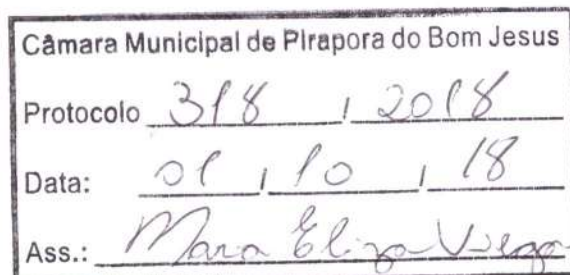 Câmara Municipal de Pirapora do Bom Jesus
Protocolo 318 / 2018
Data: 01 / 10 / 18
Ass.: Mara Eliza